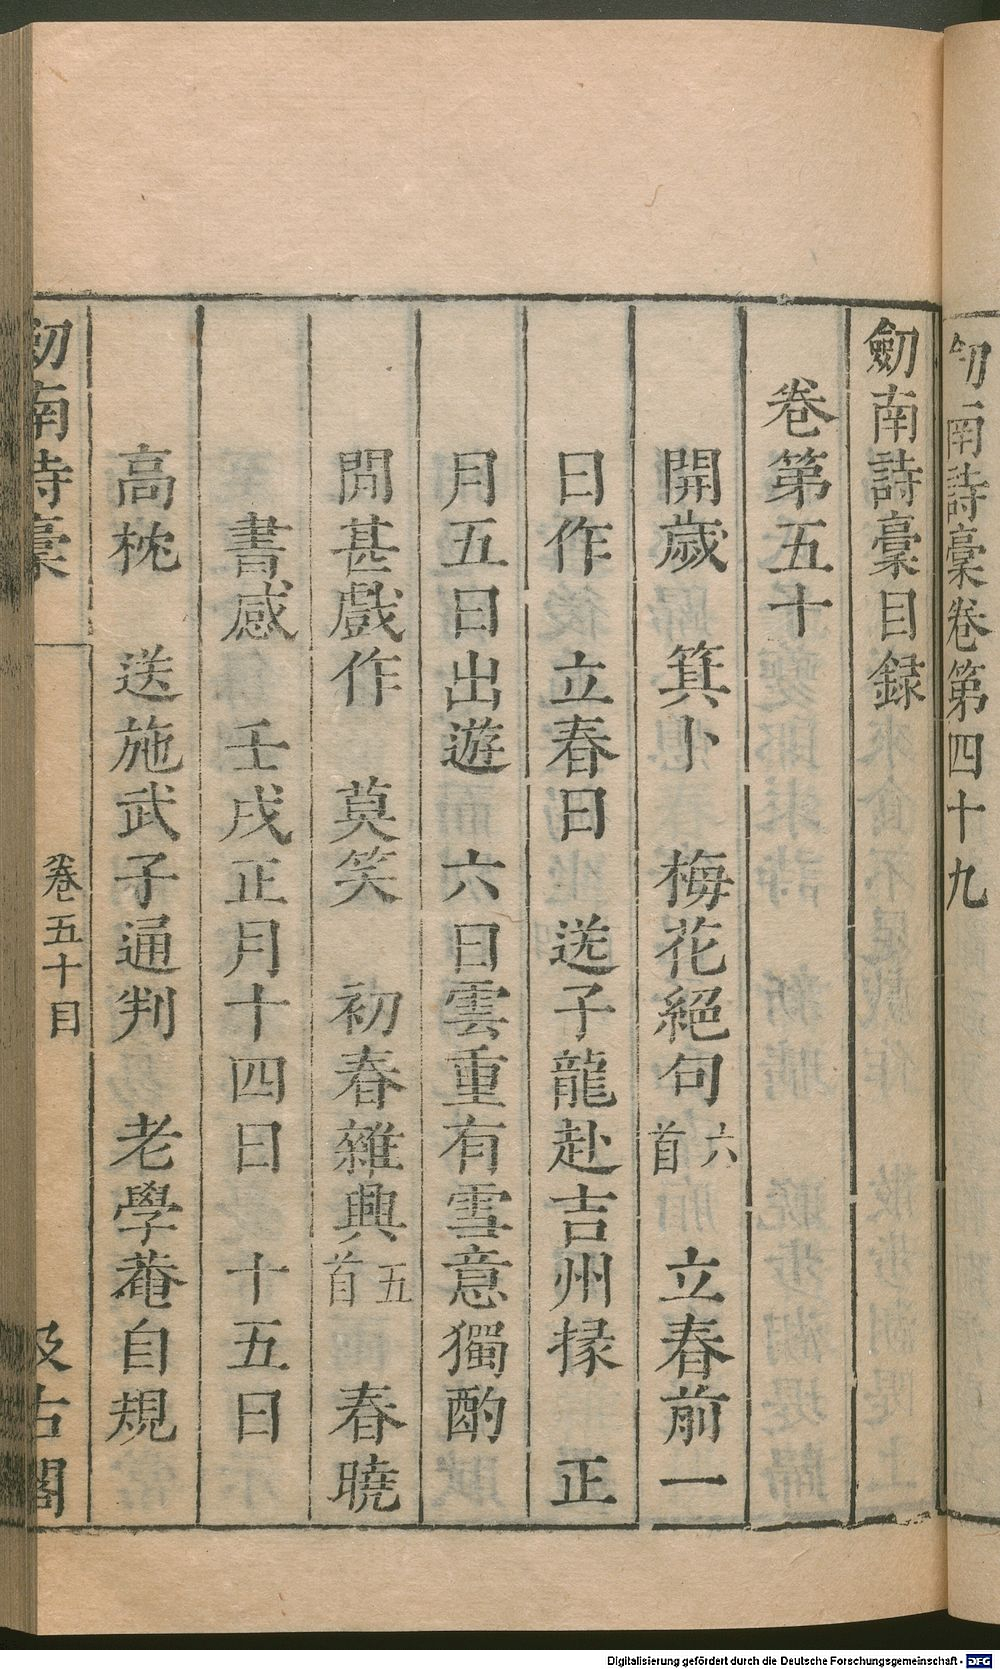 劒南詩稾卷第四十九
劒南詩稾目録
卷第五十
開歲　箕卜　梅花絕句六首　立春前一
日作　立春日　送子龍赴吉州掾　正
月五日出遊　六日雲重有雪意獨酌
閒甚戲作　莫笑　初春雜興五首　春曉
書感　壬戌正月十四日　十五日
高枕　送施武子通判　老學菴自規
劒南詩稾　卷五十目　汲古閣
Digitalisierung gefördert durch die Deutsche Forschungsgemeinschaft - DFG